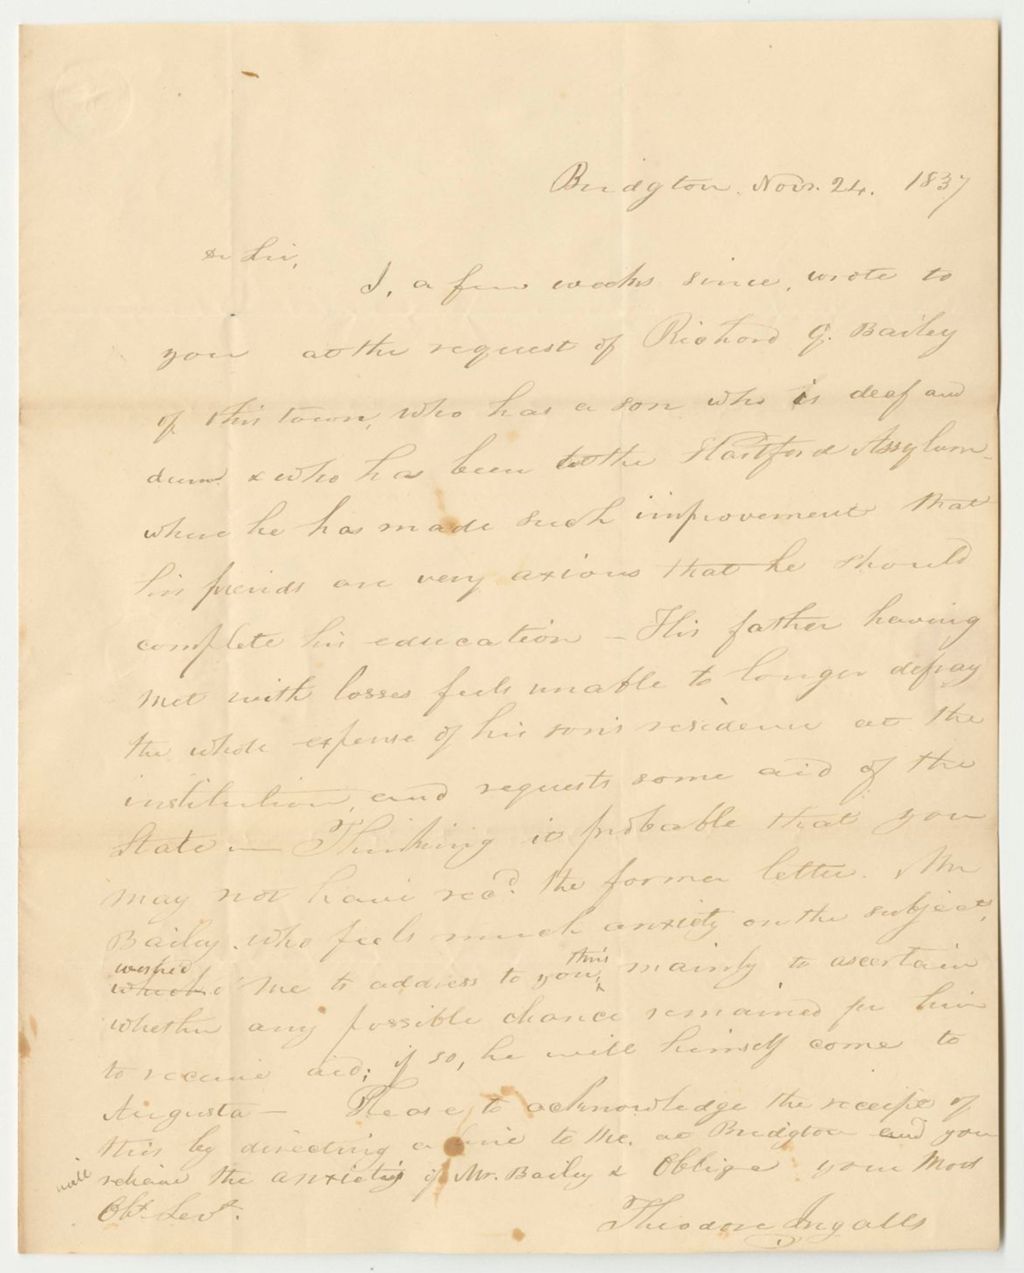 Bridgton. Nov. 24. 1837
Dr Sir,
I, a few weeks since, wrote to
you at the request of Richard G. Bailey
of this town, who has a son who is deaf and
dum & who has been to the Hartford Assylum
where he has made such improvement that
his friends are very axious that he should
complete his education — His father having
met with losses feels unable to longer defray
the whole expense of his son's residence at the
institution, and requests some aid of the
State — Thinking it probable that you
may not have recd. the former letter. Mr
Bailey, who feels much anxiety on the subject,
wished this
me to address to you, mainly to ascertain
whether any possible chance remained for him
to receive aid; if so, he will himself come to
Augusta — Please to acknowledge the receipt of
this by directing a line to me, at Bridgton and you
will relieve the anxiety of Mr. Bailey & Oblige your Most
Obt. Servt.
Theodore Ingalls